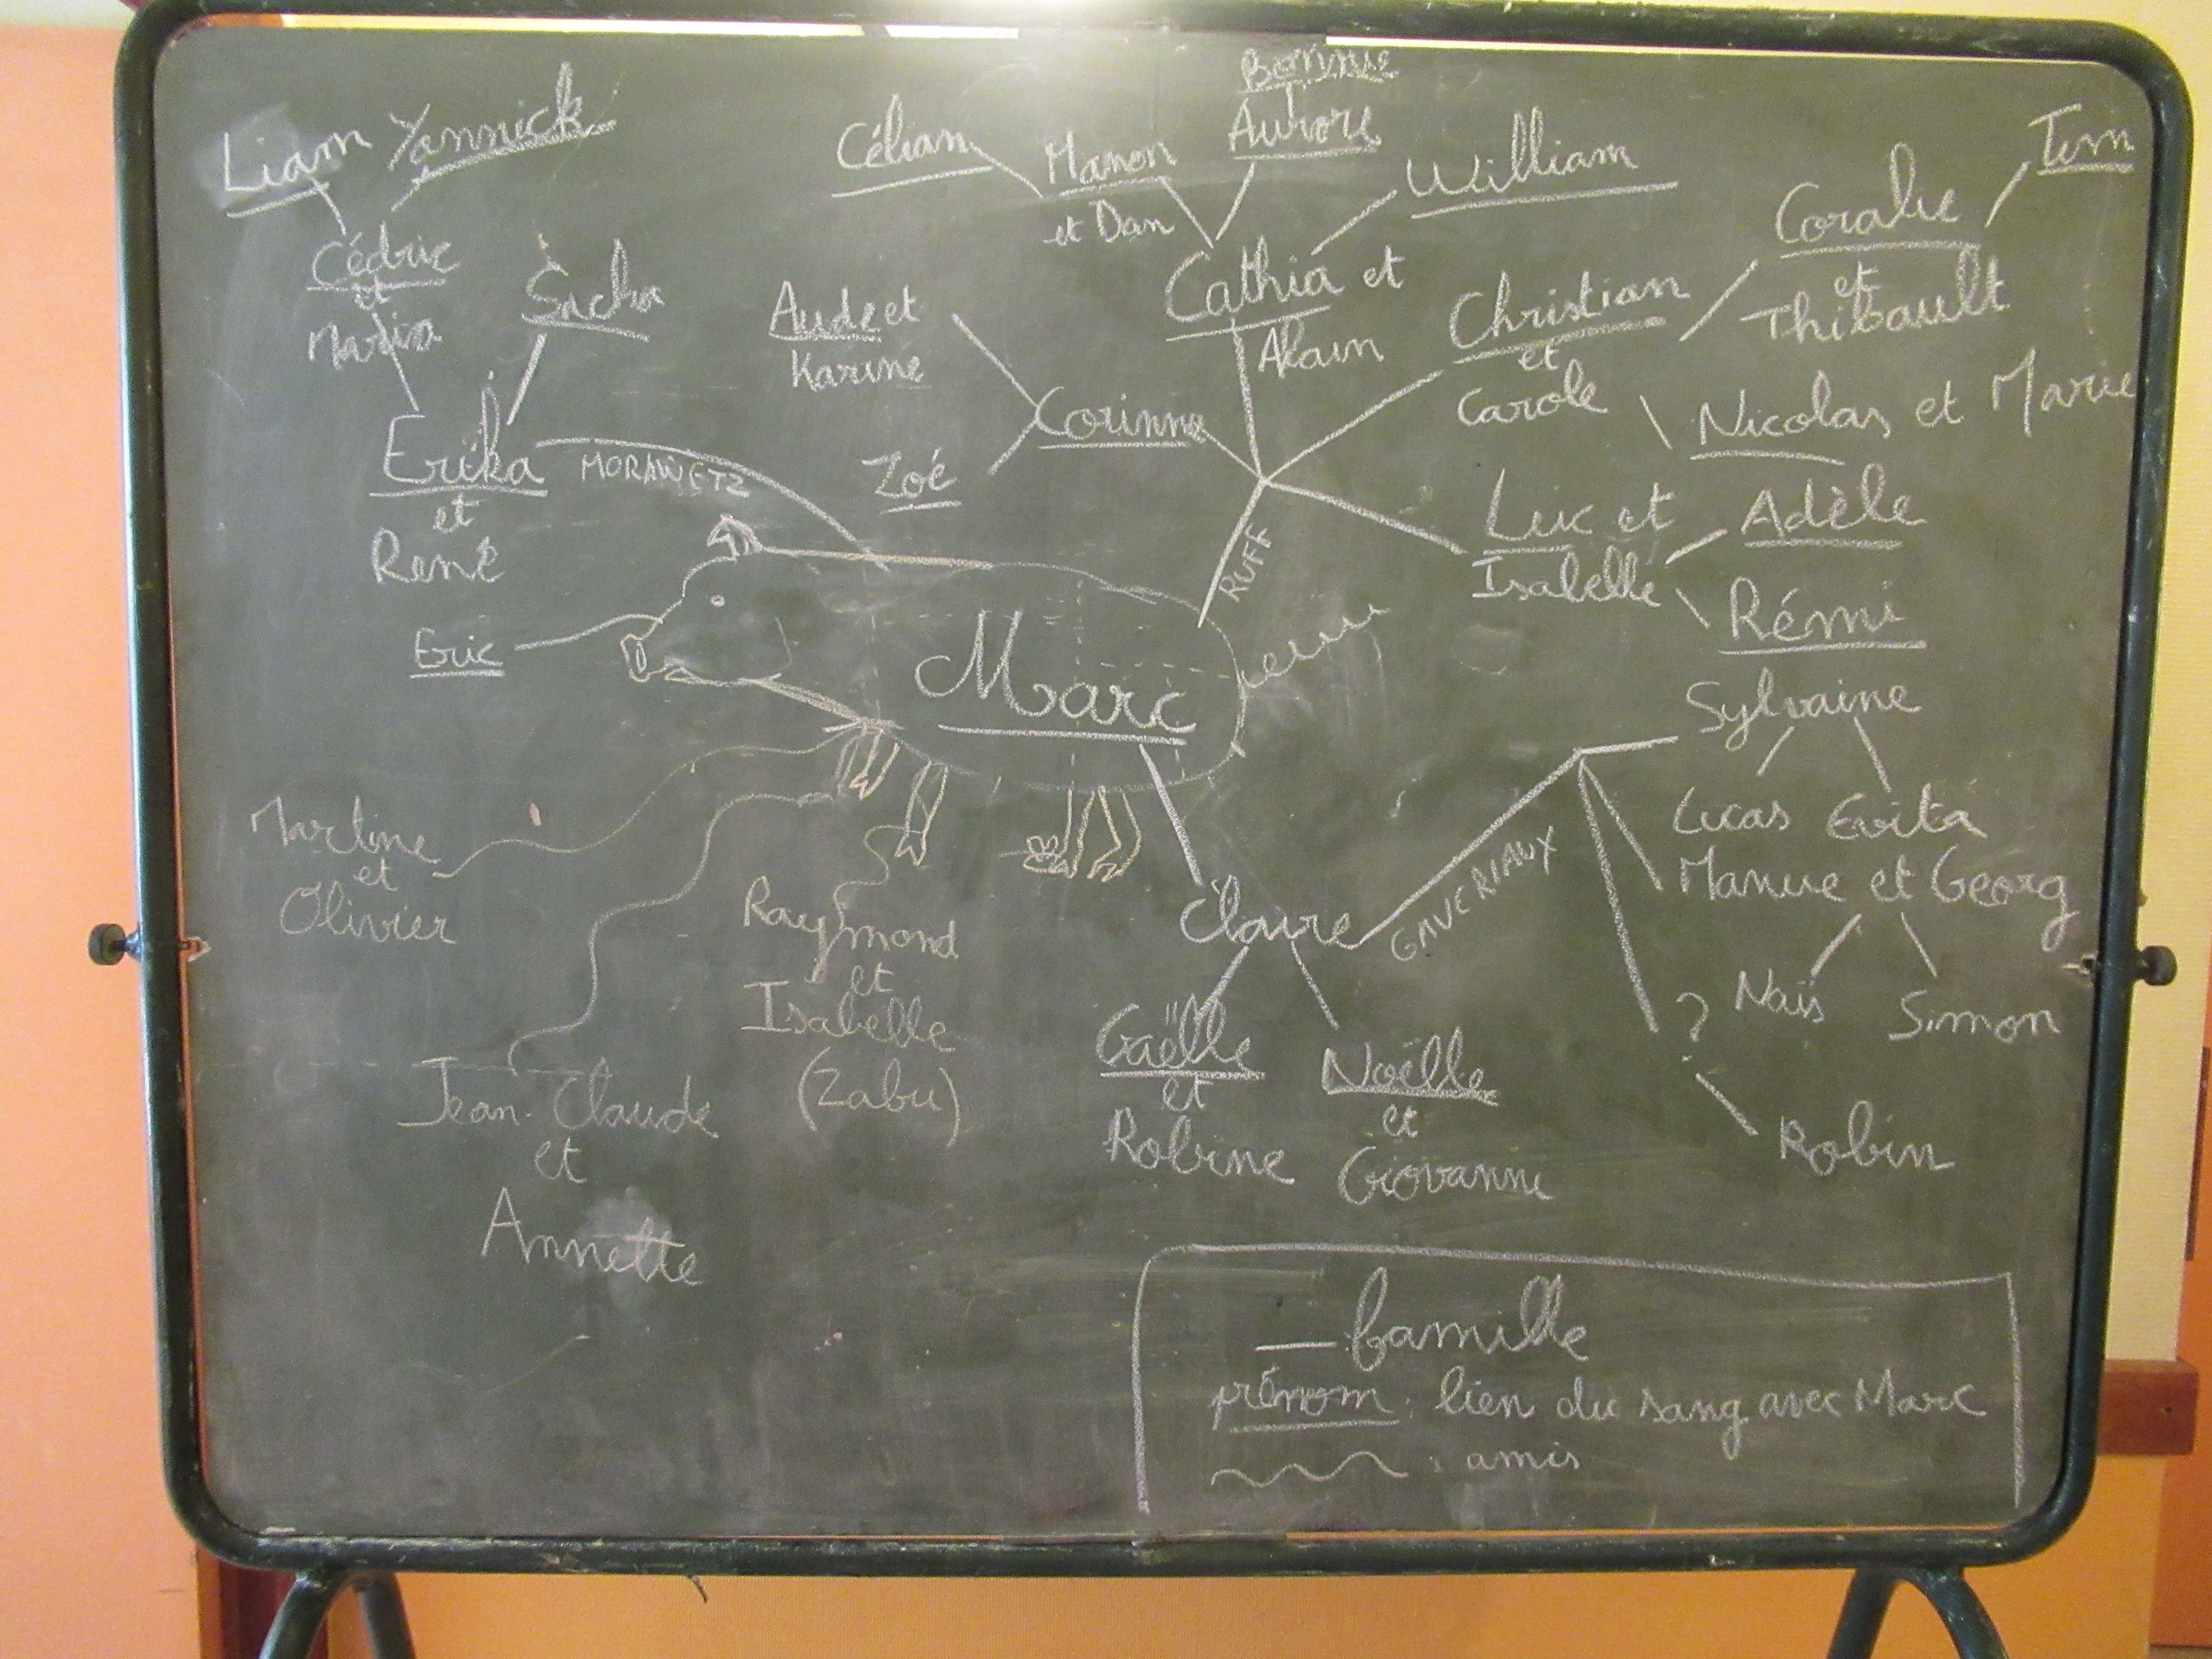 Bonnie
Liam
Yannick
Célian
Manon
et Dan
Aurore
William
Tim
Coralie
et
Thibault
Cédric
et
Maria
Sacha
Aude et
Karine
Cathia et
Alain
Christian
et
Carole
Nicolas et Marie
Erika
et
René
MORAWETZ
Corinne
Zoé
RUFF
Luc et
Isabelle
Adèle
Rémi
Eric
Marc
Sylvaine
Lucas
Evita
Manue et Georg
Naïs
Simon
GAVERIAUX
Martine
et
Olivier
Raymond
et
Isabelle
(Zabu)
Claire
?
Robin
Jean-Claude
et
Annette
Gaëlle
et
Robine
Noëlle
et
Giovanni
famille
prénom : lien du sang avec Marc
: amis